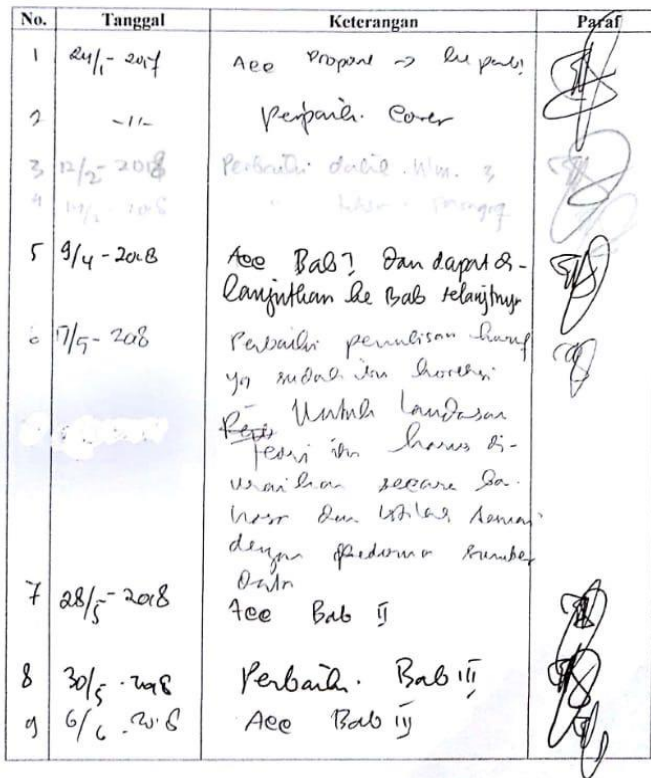 No. Tanggal Keterangan Paraf
1 24/1 - 2017 Acc Propos → 
2 -11- Perbaiki Cover
3 12/2 - 2018 Perbaiki dalil. Hlm. 3
4
5 9/4 - 2018 Acc Bab I dan dapat di-
lanjutkan ke Bab selanjutnya
6 17/5 - 2018 Perbaiki penulisan huruf
yg sudah koreksi
Untuk Landasan
Teori harus di-
uraikan secara ba-
hasa dan istilah sesuai
dengan sumber
Data
7 28/5 - 2018 Acc Bab II
8 30/5 - 2018 Perbaiki Bab III
9 6/6 - 2018 Acc Bab III